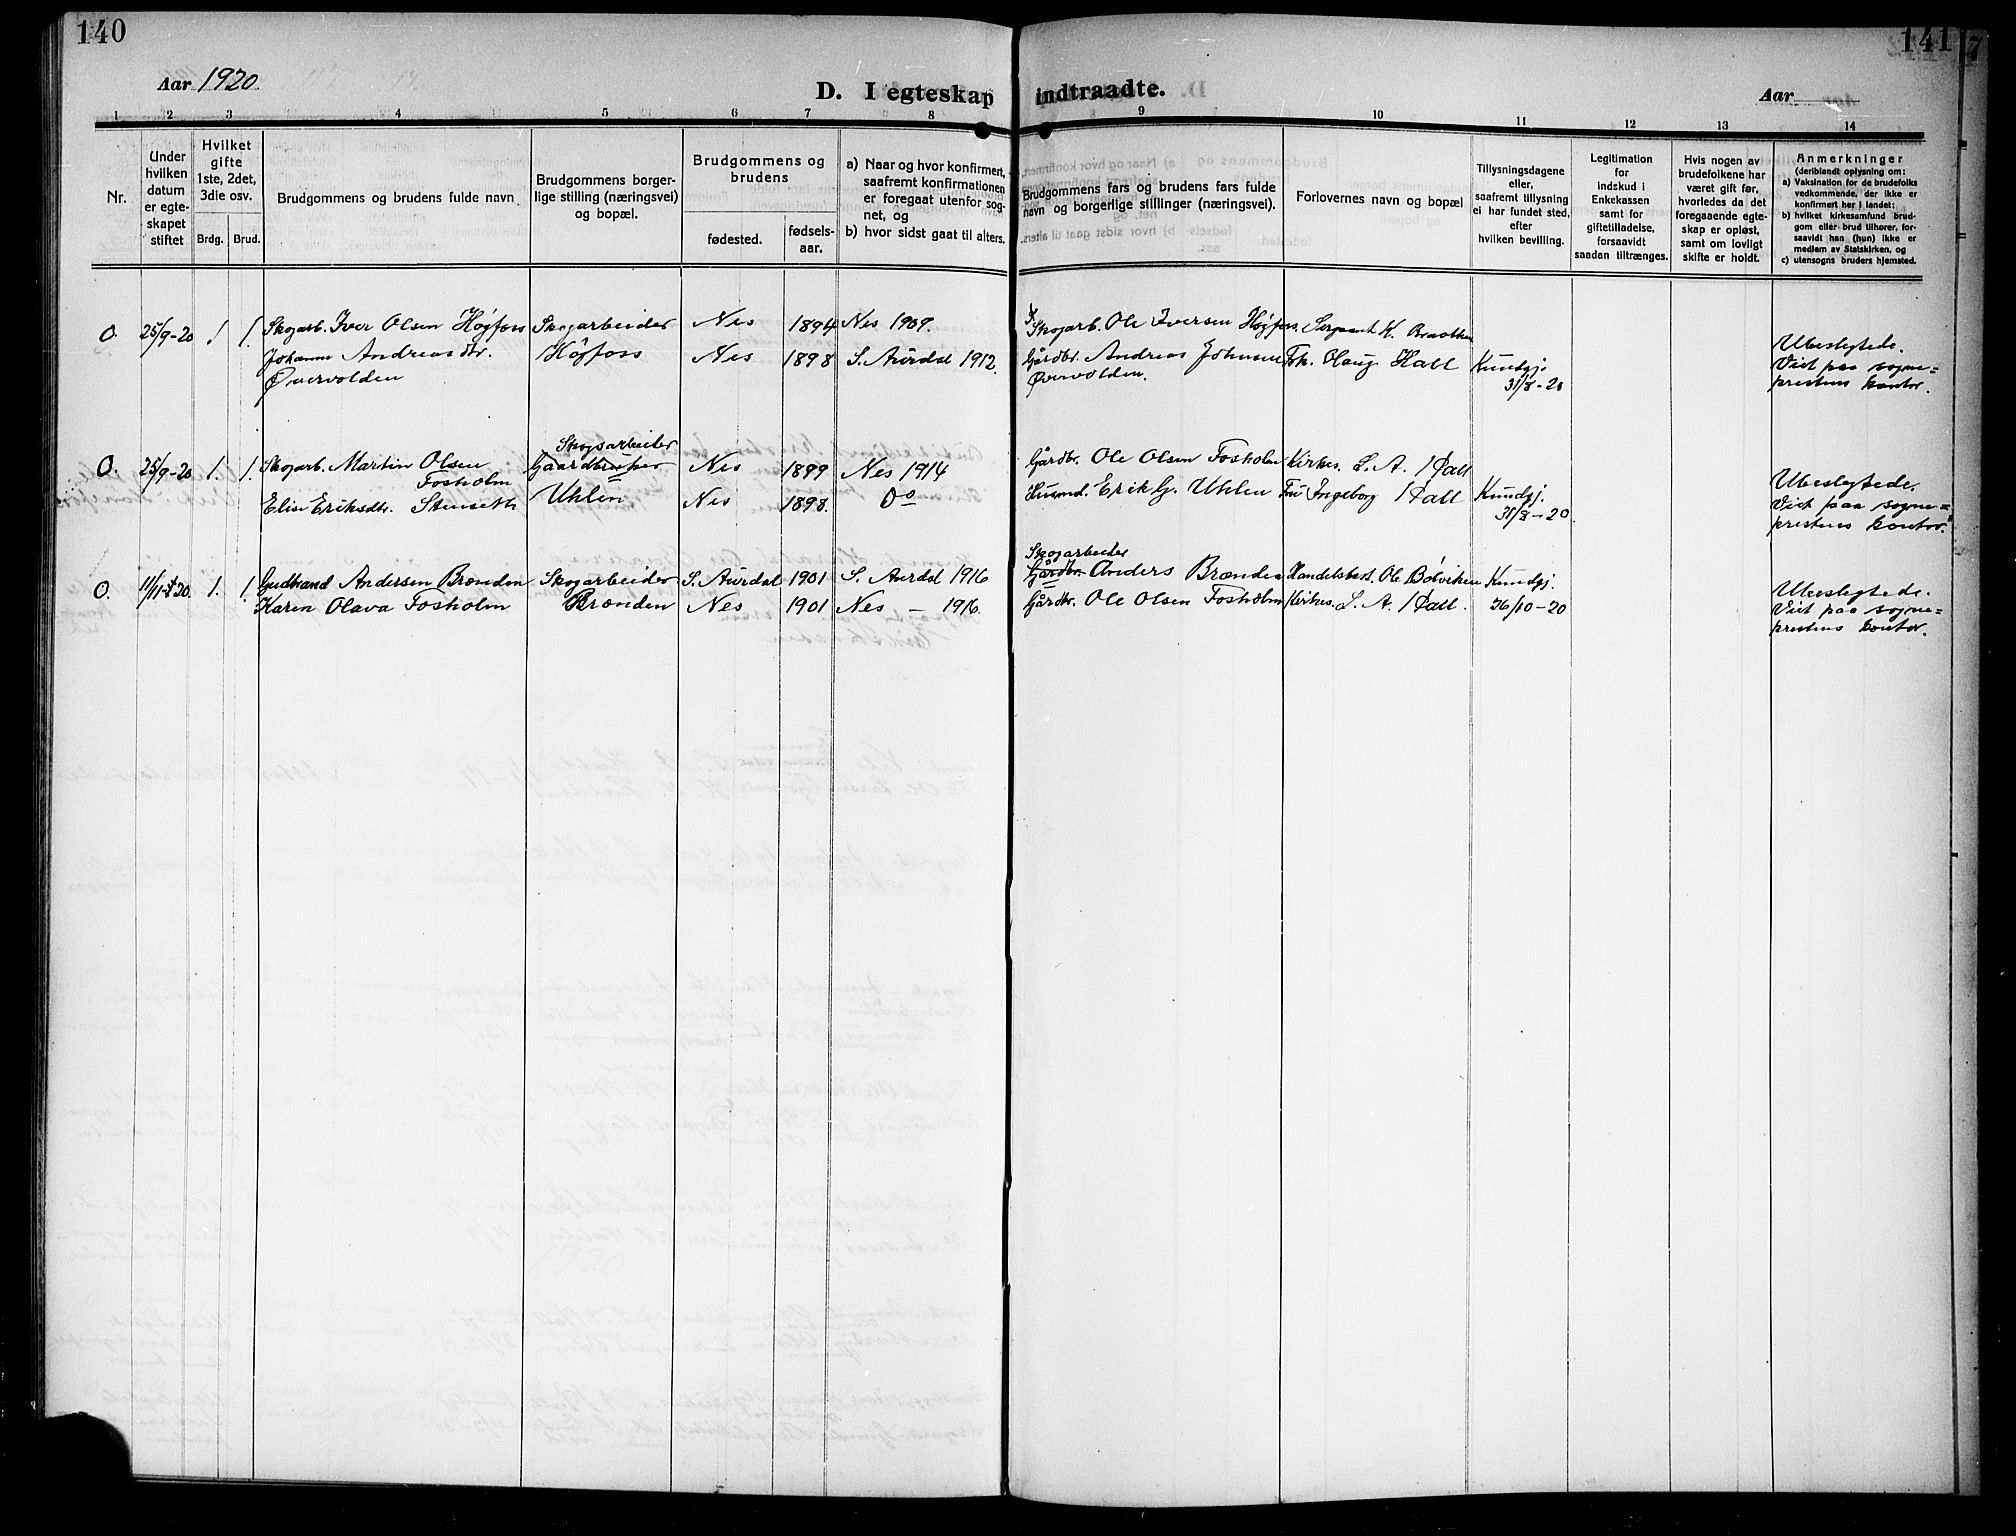 140
Aar 1920.
D. I egteskap
1 2 3 4 5 6 7 8
Nr.
Under hvilken datum er egte- skapet stiftet
Hvilket gifte 1ste, 2det, 3die osv.
Brdg. Brud.
Brudgommens og brudens fulde navn
Brudgommens borger- lige stilling (næringsvei) og bopæl.
Brudgommens og brudens
fødested.
fødsels- aar.
a) Naar og hvor konfirmert, saafremt konfirmationen er foregaat utenfor sog- net, og
b) hvor sidst gaat til alters.
O. 25/9-20 1 1. Skogarb. Iver Olsen Høgfoss Skogarbeider Nes 1894 Nes 1909.
Johanne Andreasdtr. Høgfoss Nes 1898 S. Aurdal 1912.
Øvervolden
Skogsarbeider
O. 25/9-20 1. 1. Skogarb. Martin Olsen Gaardbruker Nes 1899 Nes 1914
Fosholm
Elise Eriksdtr. Stenseth Uhlen Nes 1898. Do
O. 11/11-20. 1. 1. Gudbrand Andersen Brænden Skogarbeider S. Aurdal 1901 S. Aurdal 1916
Karen Olava Fosholm Brænden Nes 1901 Nes — 1916.
141
7
indtraadte.
Aar
9 10 11 12 13 14
Brudgommens fars og brudens fars fulde navn og borgerlige stillinger (næringsvei).
Forlovernes navn og bopæl
Tillysningsdagene eller, saafremt tillysning ei har fundet sted, efter hvilken bevilling.
Legitimation for indskud i Enkekassen samt for giftetilladelse, forsaavidt saadan tiltrænges.
Hvis nogen av brudefolkene har været gift før, hvorledes da det foregaaende egte- skap er opløst, samt om lovligt skifte er holdt.
Anmerkninger
(deriblandt oplysning om:
a) Vaksination for de brudefolks vedkommende, der ikke er konfirmert her i landet:
b) hvilket kirkesamfund brud- gom eller brud tilhører, for- saavidt han (hun) ikke er medlem av Statskirken, og
c) utensogns bruders hjemsted.
Skogarb. Ole Iversen Høgfoss. Sergeant K. Braathen
Gårdbr. Andreas Johnsen Haug Hall Kundgj. Ubeslegtede.
Øvervolden. 31/8-20 Viet paa sogne=
prestens kontor.
Gårdbr. Ole Olsen Fosholm Kirkes. L. A. Hall Ubeslegtede.
Husmd. Erik G. Uhlen Fru Ingeborg Hall Kundgj. Viet paa sogne=
31/8-20 prestens kontor.
Skogarbeider
Gårdbr. Anders Brænden Handelsbest. Ole Bøbviken Kundgj. Ubeslegtede.
Gårdbr. Ole Olsen Fosholm Kirkes. L. A. Hall. 26/10-20 Viet paa sogne=
prestens kontor.